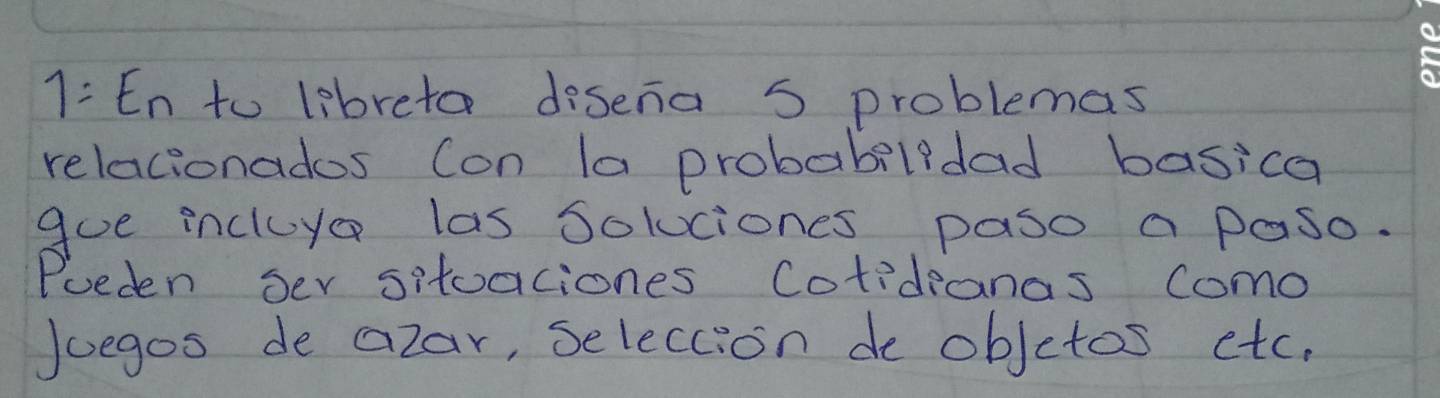 1: En tu libreta diseña 5 problemas
relacionados con la probabilidad basica
que incluya las soluciones paso a paso.
Pueden ser situaciones cotidianas como
juegos de azar, selección de objetos etc.
ene